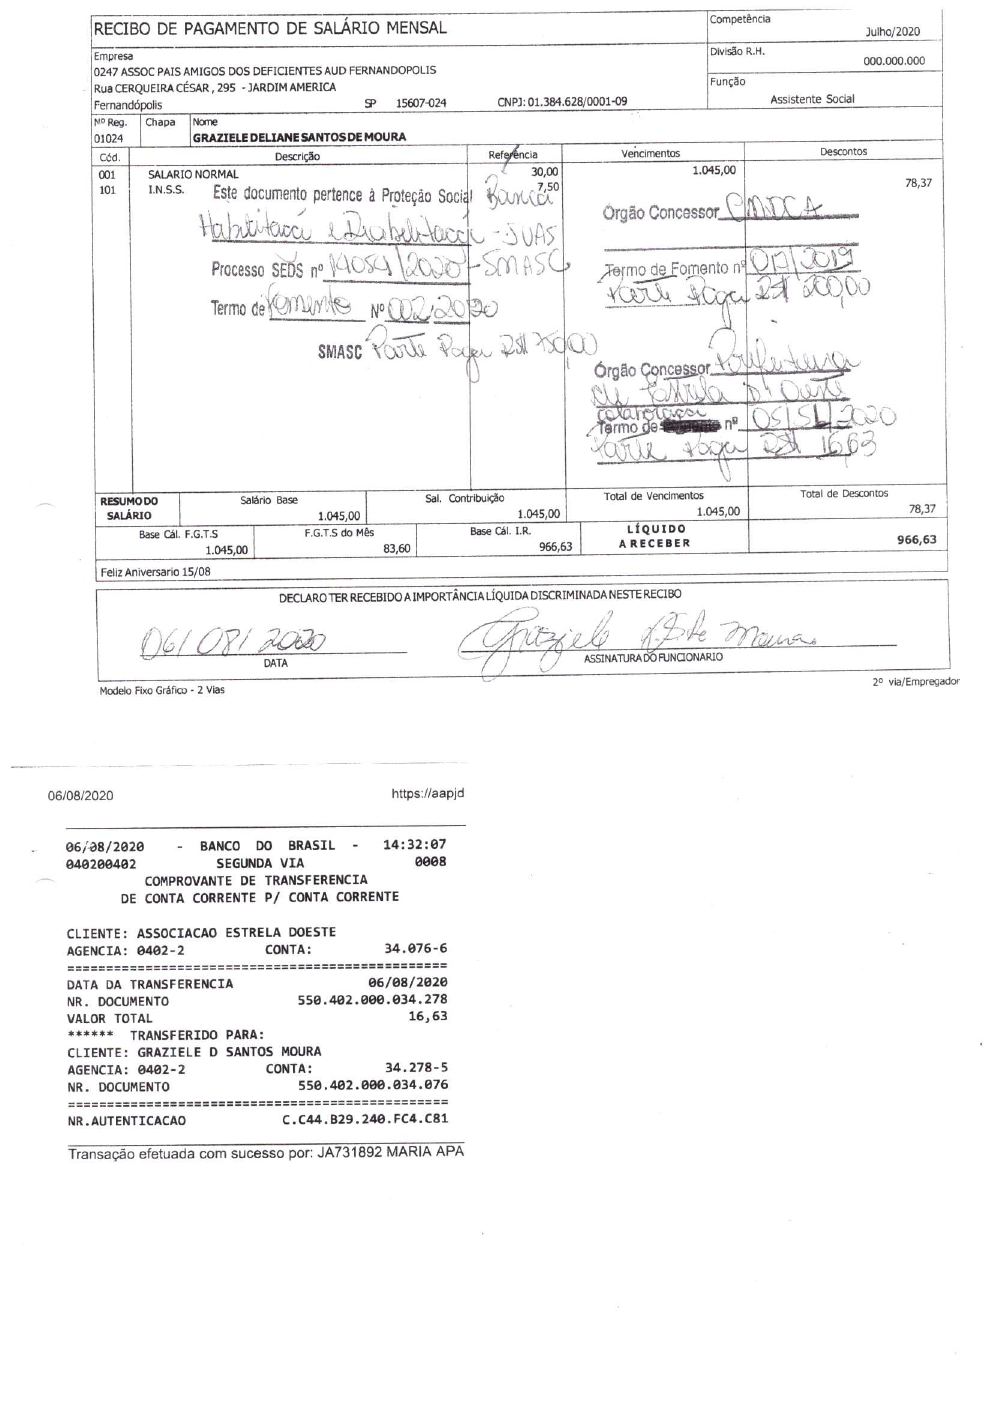 RECIBO DE PAGAMENTO DE SALÁRIO MENSAL
Competência
Julho/2020
Divisão R.H.
000.000.000
Função
Assistente Social
Empresa
0247 ASSOC PAIS AMIGOS DOS DEFICIENTES AUD FERNANDOPOLIS
Rua CERQUEIRA CÉSAR , 295 - JARDIM AMERICA
Fernandópolis SP 15607-024 CNPJ: 01.384.628/0001-09
Nº Reg. Chapa Nome
01024 GRAZIELE DELIANE SANTOS DE MOURA
Cód. Descrição Referência Vencimentos Descontos
001 SALARIO NORMAL 30,00 1.045,00
101 I.N.S.S. 7,50 78,37
Este documento pertence à Proteção Social
Habilitacci e
Processo SEDS nº 14054/2020 - SMASC
Termo de Fomento Nº 002/2020
SMASC Parte Paga R$ 750,00
Órgão Concessor CMDCA
Termo de Fomento nº 017/2019
Parte Paga R$ 200,00
Órgão Concessor Prefeitura
de Estrela D'Oeste
colaboração
Termo de nº 05/51/2020
Parte Paga R$ 16,63
RESUMO DO SALÁRIO
Salário Base
1.045,00
Sal. Contribuição
1.045,00
Total de Vencimentos
1.045,00
Total de Descontos
78,37
Base Cál. F.G.T.S
1.045,00
F.G.T.S do Mês
83,60
Base Cál. I.R.
966,63
LÍQUIDO A RECEBER
966,63
Feliz Aniversario 15/08
DECLARO TER RECEBIDO A IMPORTÂNCIA LÍQUIDA DISCRIMINADA NESTE RECIBO
06/08/2020 Graziele Moura
DATA ASSINATURA DO FUNCIONARIO
Modelo Fixo Gráfico - 2 Vias 2º via/Empregador
06/08/2020 https://aapjd
06/08/2020 - BANCO DO BRASIL - 14:32:07
040200402 SEGUNDA VIA 0008
COMPROVANTE DE TRANSFERENCIA
DE CONTA CORRENTE P/ CONTA CORRENTE
CLIENTE: ASSOCIACAO ESTRELA DOESTE
AGENCIA: 0402-2 CONTA: 34.076-6
================================================
DATA DA TRANSFERENCIA 06/08/2020
NR. DOCUMENTO 550.402.000.034.278
VALOR TOTAL 16,63
****** TRANSFERIDO PARA:
CLIENTE: GRAZIELE D SANTOS MOURA
AGENCIA: 0402-2 CONTA: 34.278-5
NR. DOCUMENTO 550.402.000.034.076
================================================
NR.AUTENTICACAO C.C44.B29.240.FC4.C81
Transação efetuada com sucesso por: JA731892 MARIA APA